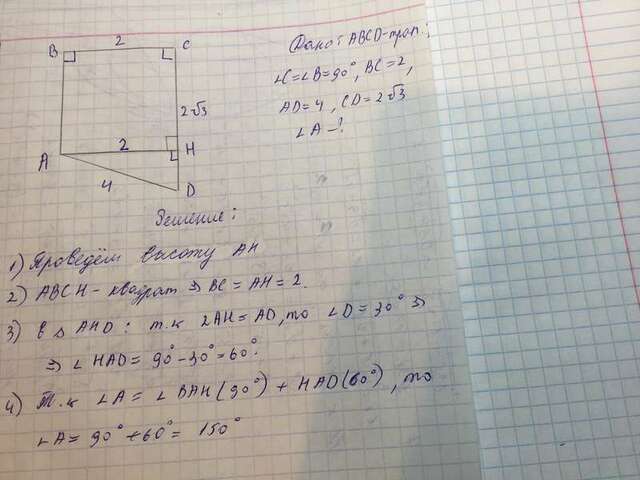 2
B
C
2√3
2
A
H
4
D
Дано: ABCD-трап.;
∠C=∠B=90°, BC=2,
AD=4, CD=2√3
∠A-?
Решение:
1) Проведём высоту AH
2) ABCH-квадрат ⇒ BC=AH=2.
3) В △ AHD: т.к 2AH=AD, то ∠D=30° ⇒
⇒ ∠HAD=90°-30°=60°.
4) Т.к ∠A=∠BAH(90°)+HAD(60°), то
∠A=90°+60°=150°